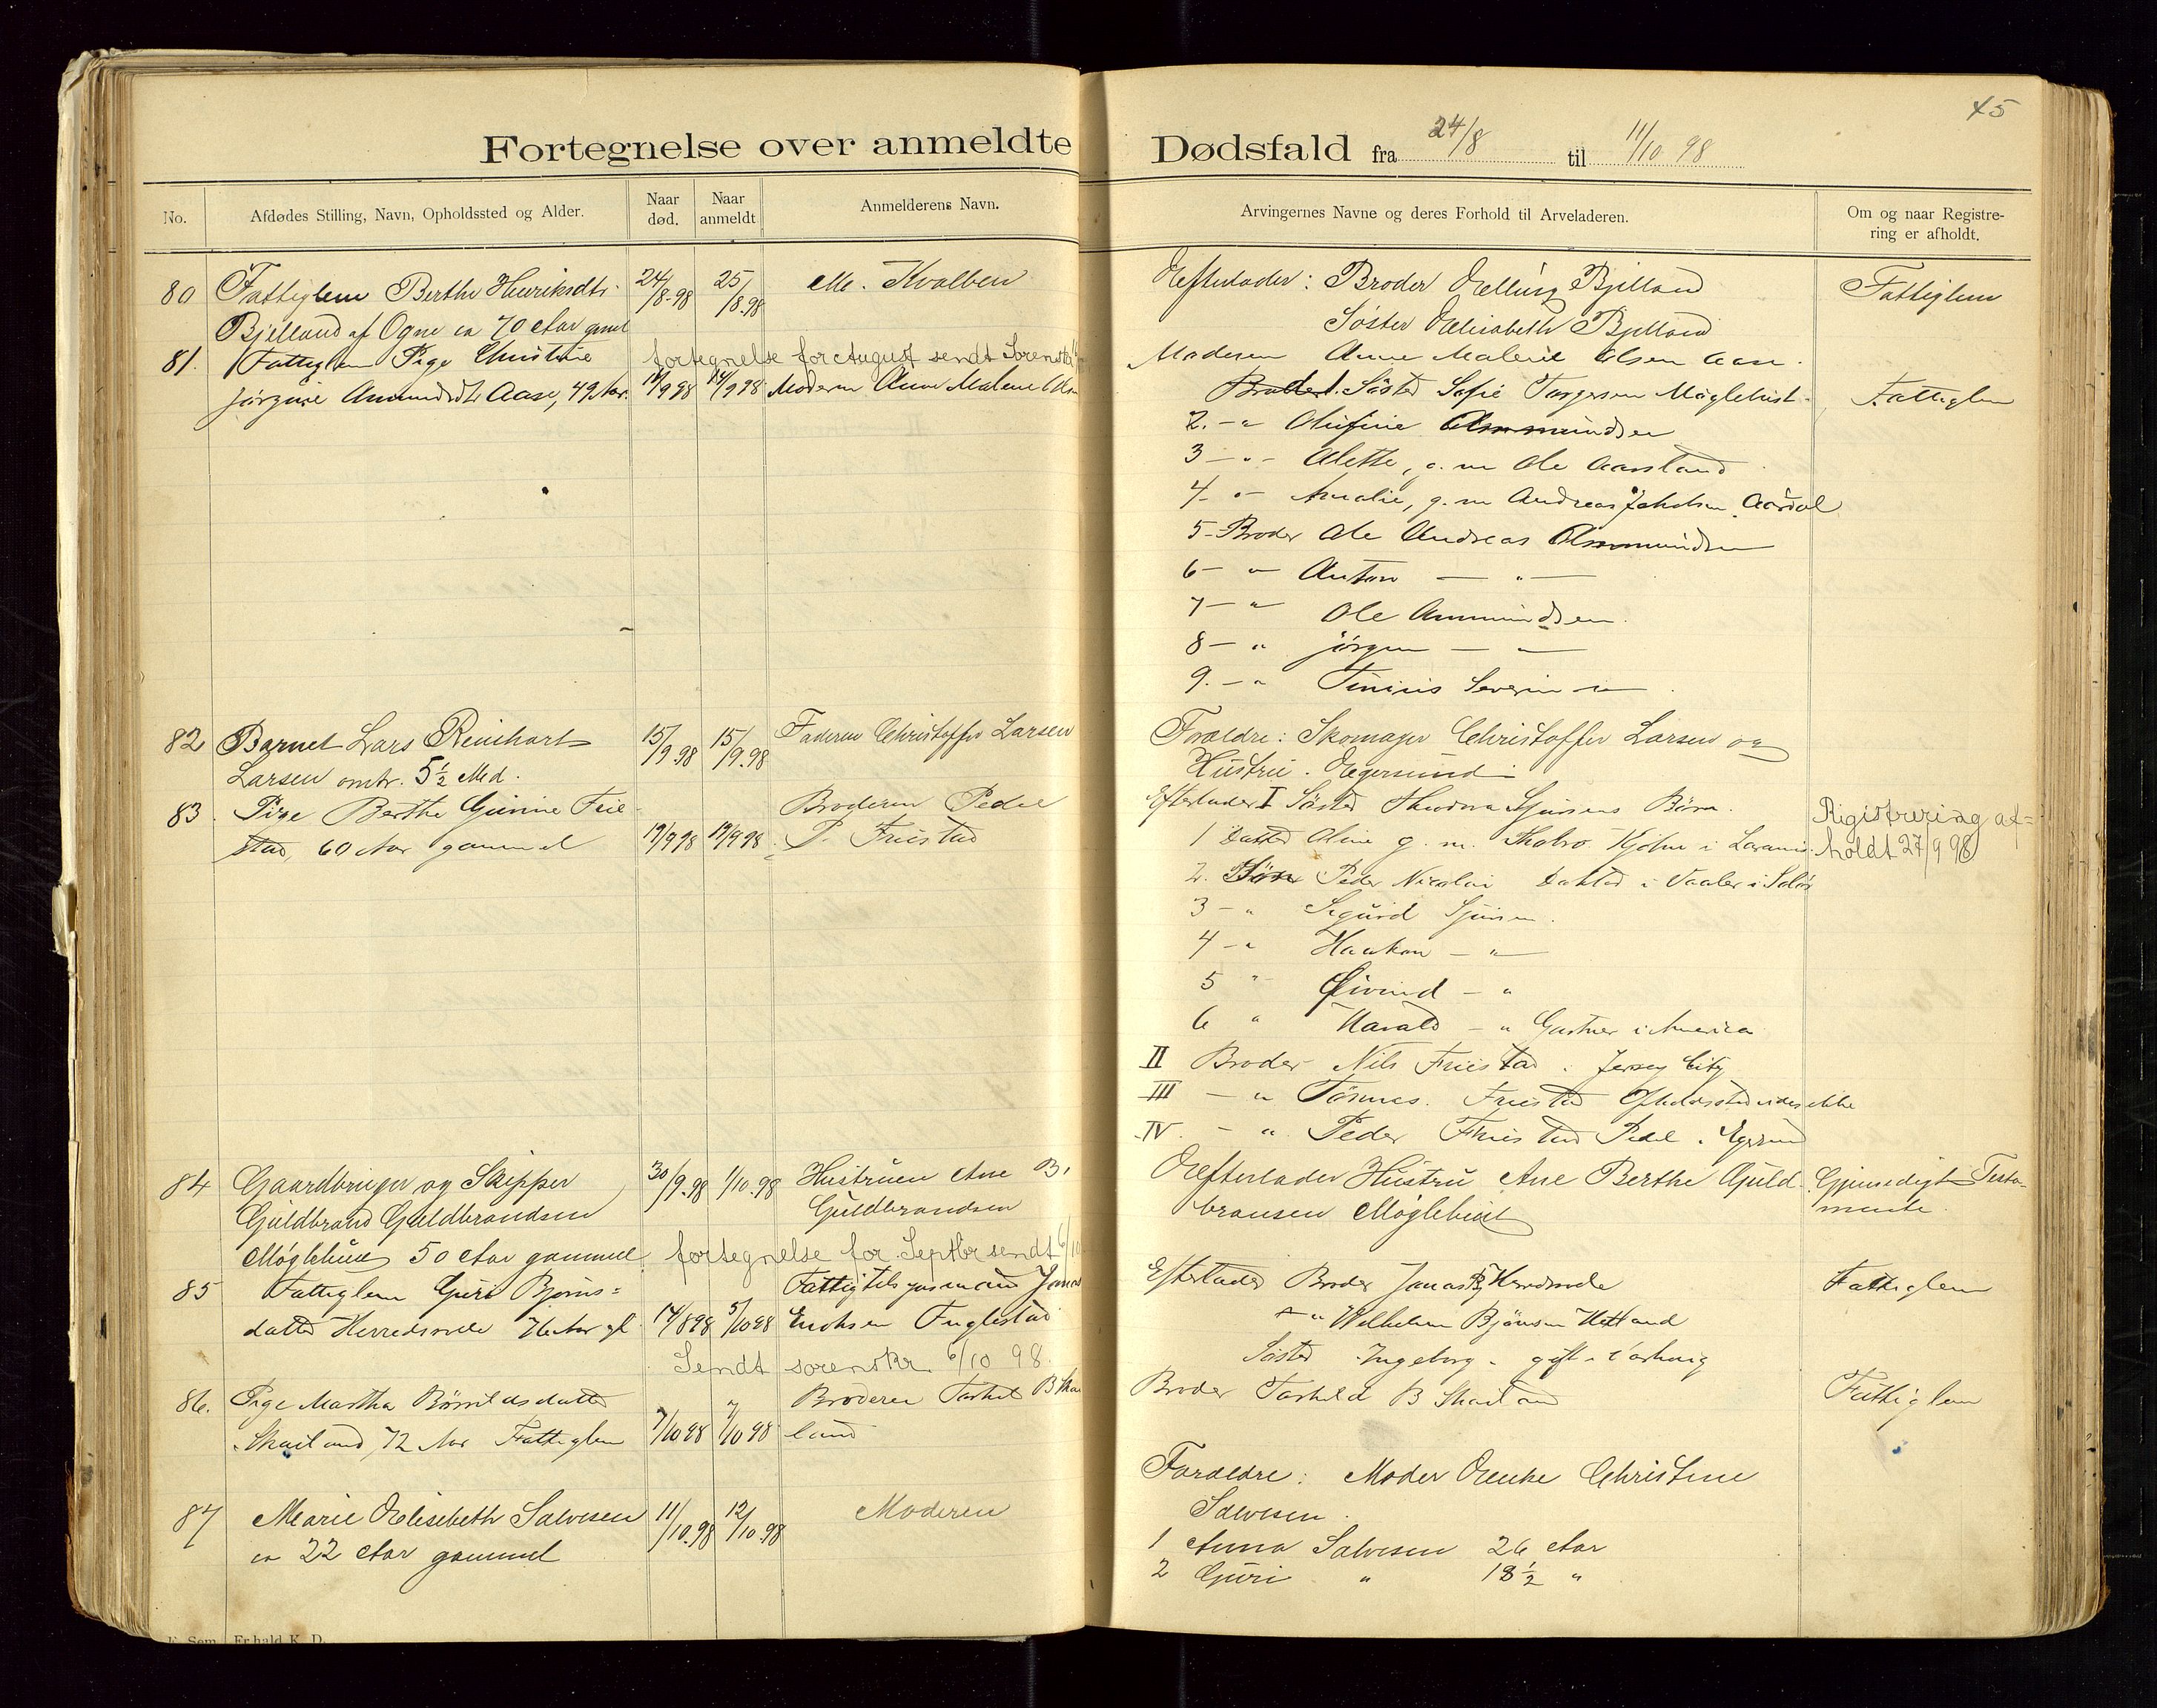 45
Fortegnelse over anmeldte Dødsfald fra 24/8 til 11/10 98
No.
Afdødes Stilling, Navn, Opholdssted og Alder.
Naar død.
Naar anmeldt
Anmelderens Navn.
Arvingernes Navne og deres Forhold til Arveladeren.
Om og naar Registre-
ring er afholdt.
80 Fattiglem Berthe Henriksdtr. 24/8-98 25/8.98 M. Kvalben
Bjelland af Ogne ca 70 Aar gml
Efterlader: Broder Elling Bjelland
Søster Elisabeth Bjelland
Fattiglem
fortegnelse for August sendt Sorenskr
81. Fattiglem Pige Christine
Jørgine Ammundsdtr Aase, 49 Aar. 14/9 98 14/9 98 Moderen Anne Malene Olsen
Moderen Anne Malene Olsen Aase.
1. Søster Sofie Torgersen Møglebust
Fattiglem
2. -"- Olufine Ammundsen
3 -"- Alette, g. m Ole Aarstand
4 -"- Amalie, g. m Andreas Jakobsen Aardal
5- Broder Ole Andreas Ammundsen
6 - " Anton — " —
7 - " Ole Ammundsen.
8 - " Jørgen — " —
9. - " Tinius Severin - " —
82 Barnet Lars Reinhart 15/9 98 15/9.98 Faderen Christoffer Larsen
Larsen omtr. 5½ Md.
Foældre: Skomager Christoffer Larsen og
Hustru. Egersund
83 Pige Berthe Gurine Frie
stad, 60 Aar gammel 19/9 98 19/9 98 Broderen Pedel
P. Friestad
Efterlader I Søster Theodora Sjursens Børn.
1 Datter Oline g. m. Tholvo Kjølne i Laramie
2. Søn Peder Nicolai Doktor i Vaaler i Solør
3 - " Sigurd Sjursen.
4 - " Haakon - " —
5 " Øivind - "
6 " Harald - " Gartner i America
II Broder Nils Friestad i Jersey City
III - " Tønnes. Friestad Opholdssted vides ikke
IV. - " Peder Friestad Pedel i Egersund
Rigistrering af=
holdt 27/9 98
84 Gaardbruger og Skipper 30/9.98 1/10.98 Hustruen Ane B.
Guldbrand Guldbrandsen Guldbrandsen
Møglebust 50 Aar gammel
Efterlader Hustru Ane Berthe Guld-
bransen Møglebust
Gjensedigt Testa-
mente.
fortegnelse for Septbr sendt 6/10
85 Fattiglem Guri Bjørns=
datter Herredsvele 14/8 98 5/10 98 Fattigtilsynsmand Jonas
Erichsen Fuglestad
Efterlader Broder Jonas Bj Herredsvele
" Wilhelm Bjørnsen Hetland
Søster Ingeborg - gift i Varhaug
Fattiglem
Sendt sorenskr 6/10 98.
86. Pige Martha Børrildsdatter
Skailand, 72 Aar Fattiglem 7/10 98 7/10 98 Broderen Torkel B Skai
land
Broder Torkild B Skailand
Fattiglem
87 Marie Elisebeth Salvesen 11/10.98 12/10.98 Moderen
ca 22 Aar gammel
Foraeldre: Moder Christine
Salvesen.
1 Anna Salvesen 26 Aar
2 Guri " 18½ "